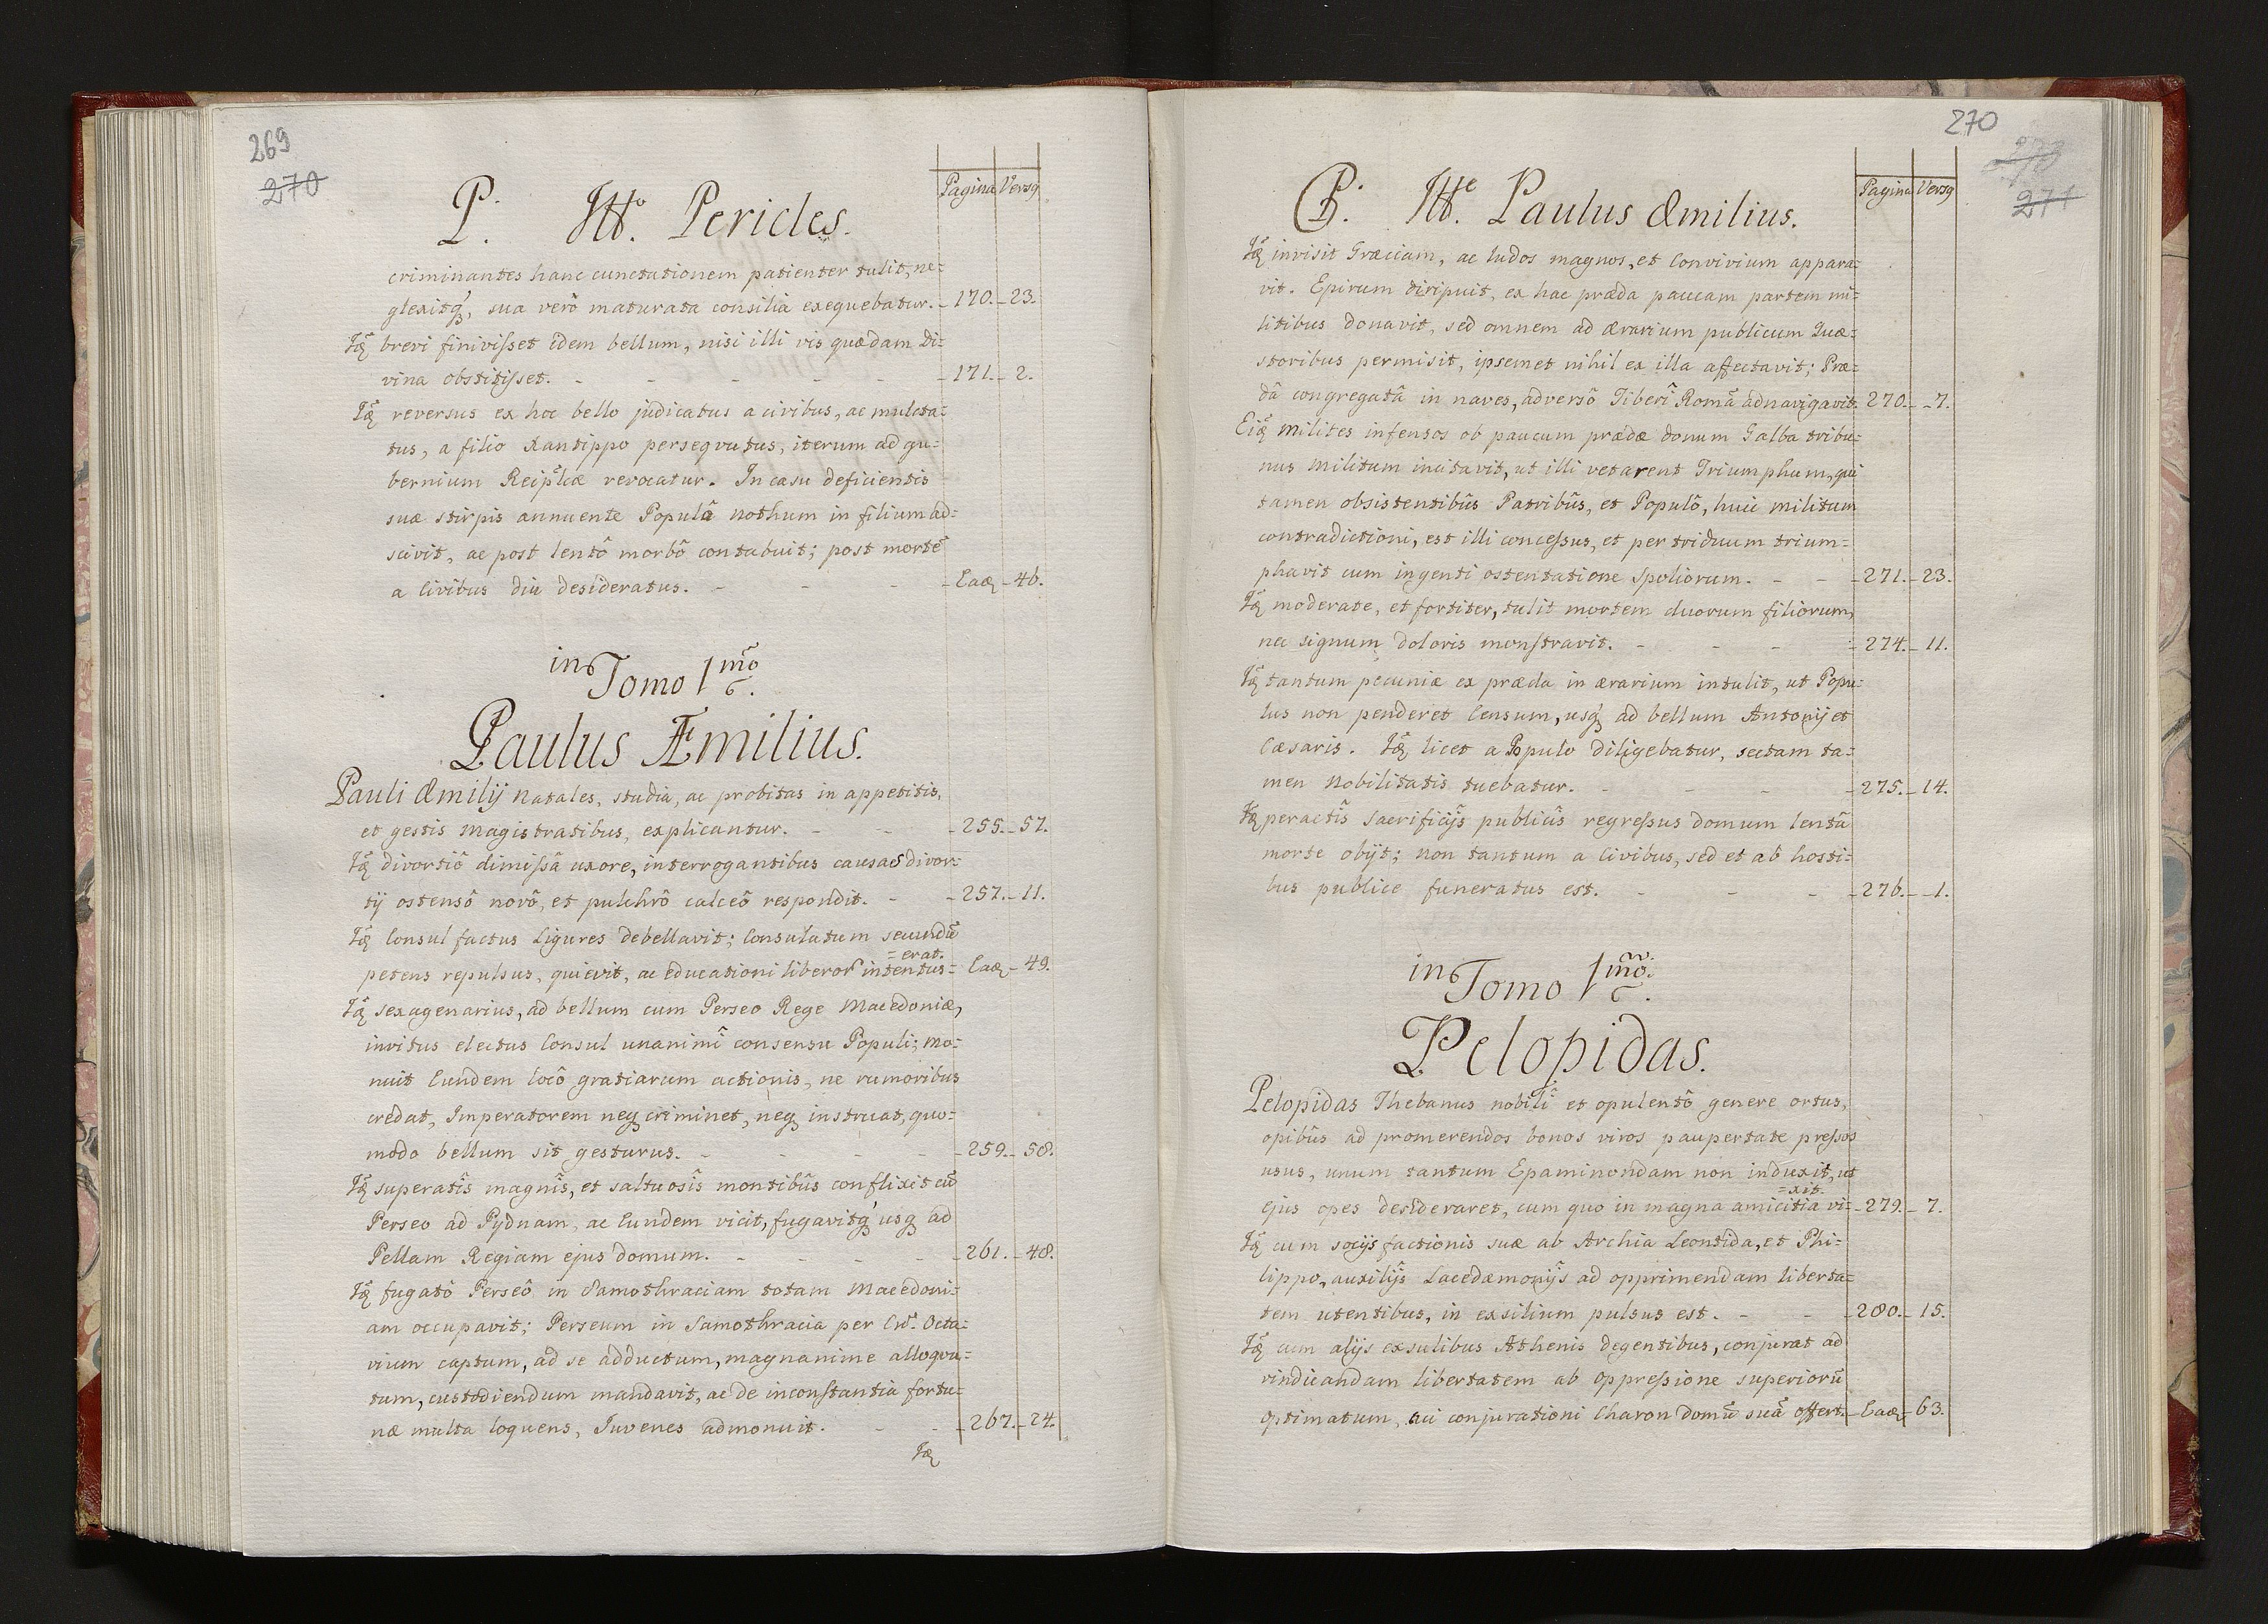 269
270
Pagina Versq
P. Itt. Pericles.
criminantes hanc cunctationem patienter tulit, ne=
glexitq́, sua verò maturata consilia exequebatur. - 170. - 23.
Iđ brevi finivisset idem bellum, nisi illi vis quædam di=
vina obstitisset. - - - - - - 171. - 2.
reversus ex hoc bello judicatus a civibus, ac mulcta=
tus, a filio Xantippo persequutus, iterum ad gu=
bernium Reiplicæ revocatur. In casu deficientis
suæ stirpis annuente Populô nothum in filium ad=
scivit, ac post lentô morbô contabuit; post mortē
a Civibus diu desideratus. - - - Eaq - 46.
in Tomo 1mo.
Paulus Æmilius.
Pauli Æmilij Natales, studia, ac probitas in appetitis,
et gestis Magistratibus, explicantur. - - - 255. - 57.
divortiô dimissâ uxore, interrogantibus causas divor=
tij ostensô novô, et pulchrô calceô respondit. - - 257. - 11.
Consul factus Ligures debellavit; Consulatum secundū
=erat.
petens repulsus, quievit, ac educationi liberor intentus= Eaq - 49.
sexagenarius, ad bellum cum Perseo Rege Macedoniæ,
invitus electus Consul unanimî consensu Populi; mo=
nuit Eundem locô gratiarum actionis, ne rumoribus
credat, Imperatorem neq criminet, neq instruat, quo=
modo bellum sit gesturus. - - - - 259. - 58.
superatîs magnîs, et saltuosîs montibûs conflixit cū
Perseo ad Pydnam, ac Eundem vicit, fugavitq́ usq ad
Pellam Regiam ejus domum. - - - - 261. - 48.
fugatô Perseô in Samothraciam totam Macedoni=
am occupavit; Perseum in Samothracia per Cn. Octa=
vium captum, ad se adductum, magnanime alloqvu=
tum, custodiendum mandavit, ac de inconstantia fortu=
næ multa loquens, Iuvenes admonuit. - - 267. - 24.
270
271
Pagina Versq
P. Itt. Paulus Æmilius.
invisit Græciam, ac ludos magnos, et Convivium appara=
vit. Epirum diripuit, ex hac præda paucam partem mi=
litibus donavit, sed omnem ad ærarium publicum Quæ=
storibus permisit, ipsemet nihil ex illa affectavit; Præ=
dâ congregatâ in naves, adversô Tiberî Romā adnavigavit. 270. - 7.
Milites infensos ob paucum prædæ donum Galba tribu=
nus Militum incitavit, ut illi vetarent Triumphum, qui
tamen obsistentibûs Patribûs, et Populô, huic militum
contradictioni, est illi concessus, et per triduum trium=
phavit cum ingenti ostentatione Spoliorum. - - 271. - 23.
moderate, et fortiter, tulit mortem duorum filiorum,
nec signum doloris monstravit. - - - - 274. - 11.
tantum pecuniæ ex præda in ærarium intulit, ut Popu=
lus non penderet Censum, usq́ ad bellum Antonij et
Cæsaris. licet a Populo diligebatur, sectam ta=
men Nobilitatis tuebatur. - - - 275. - 14.
peractîs Sacrificijs publicîs regressus domum lentâ
morte obijt; non tantum a Civibus, sed et ab hosti=
bus publice funeratus est. - - - 276. - 1.
in Tomo 1mo.
Pelopidas.
Pelopidas Thebanus nobilî et opulentô genere ortus,
opibûs ad promerendos bonos viros paupertate pressos
usus, unum tantum Epaminondam non induxit, ut
=xit.
ejus opes desideraret, cum quo in magna amicitia vi= - 279. - 7.
cum socijs factionis suæ ab Archia Leontida, et Phi=
lippo, auxilijs Lacedæmonijs ad opprimendam liberta=
tem utentibus, in exsilium pulsus est. - - 280. - 15.
cum alijs exsulibus Athenis degentibus, conjurat ad
vindicandam libertatem ab oppressione superiorū
optimatum, cui conjurationi Charon domū suā offert. - Eaq - 63.